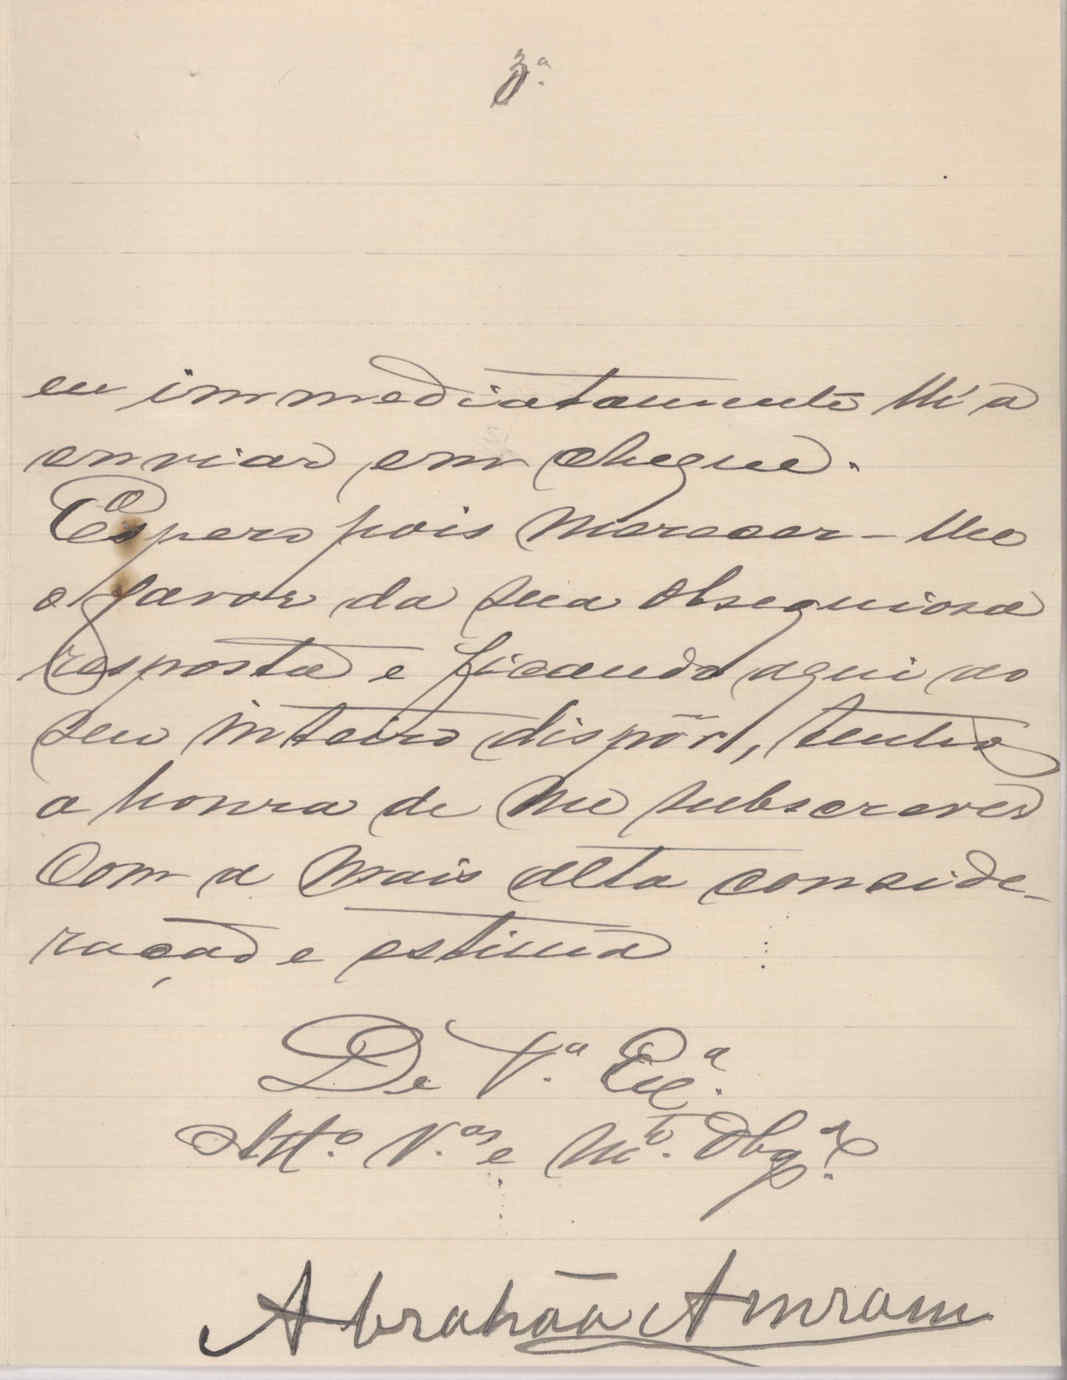 3.ª
eu immediatamente lh'a
enviar em cheque.
Espero pois merecer-lhe
o favor da sua obsequiosa
resposta e ficando aqui ao
seu inteiro dispôr, tenho
a honra de me subscrever
com a mais alta conside-
ração e estima
De V.ª Exª.
Att.º V.ºr e M.to Obgº.
Abrahão Amram